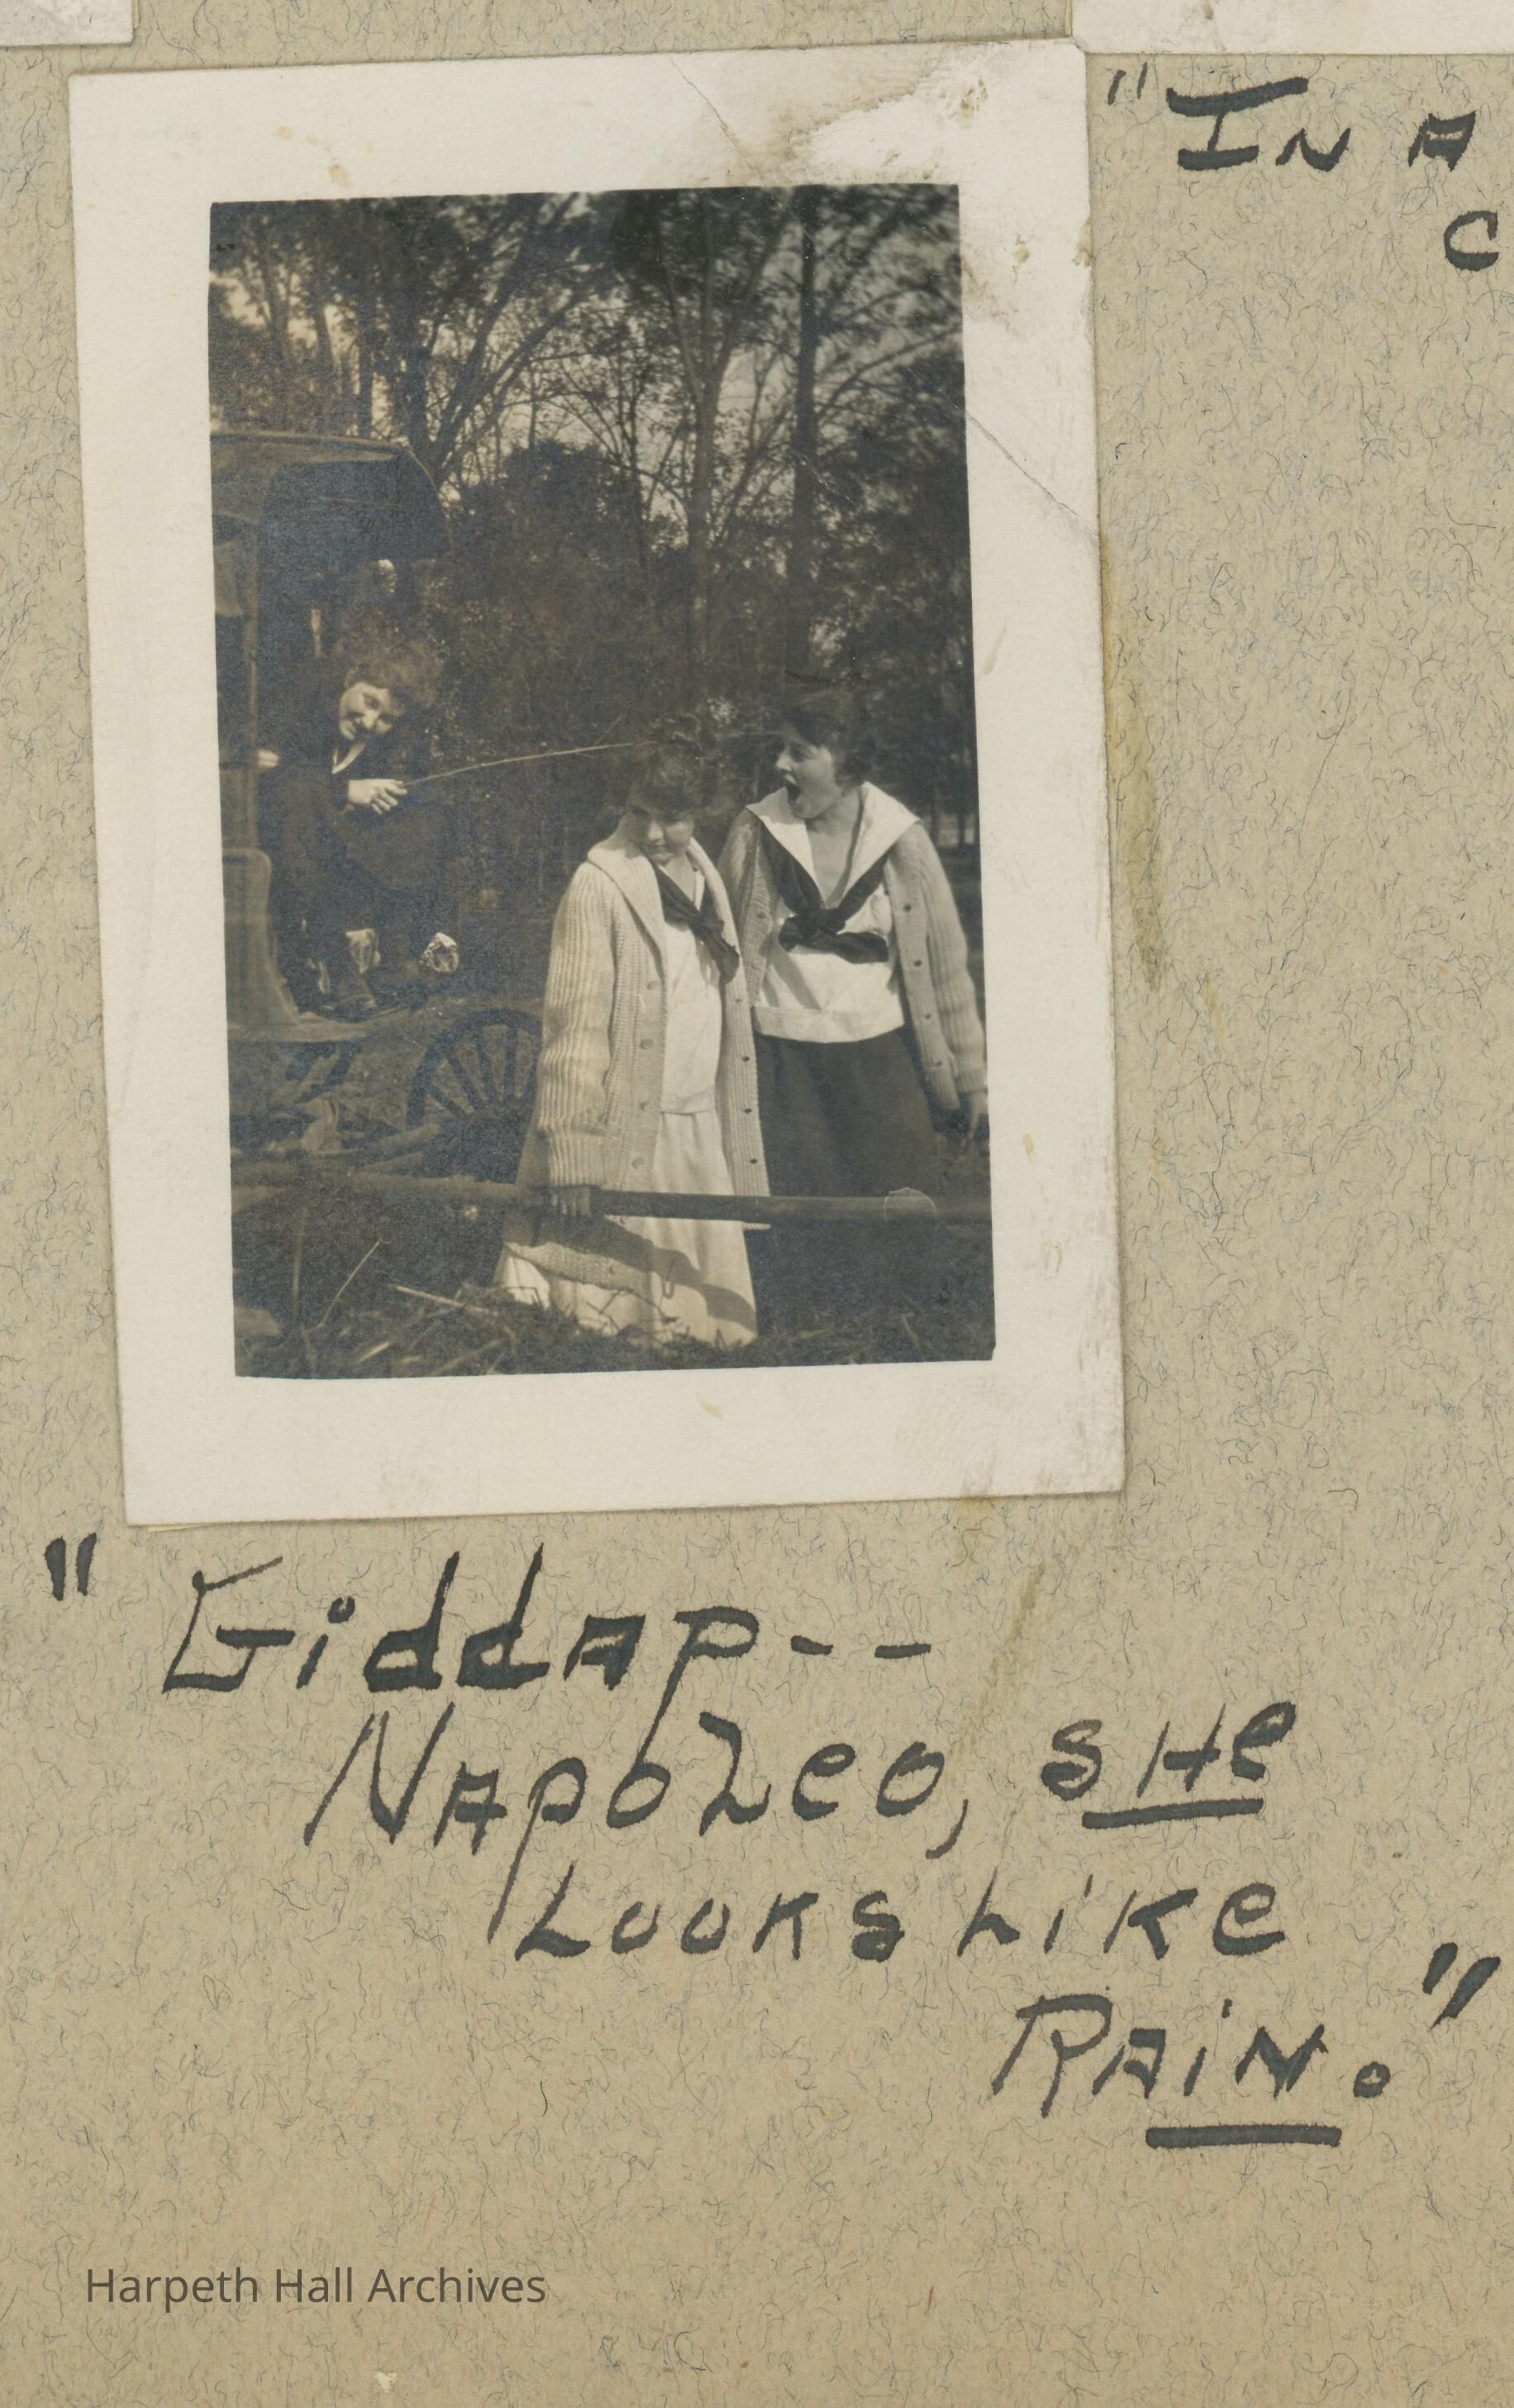 "In A
C
"GiddAp--
NApoLeo, sHe
Looks Like
RAiN."
Harpeth Hall Archives